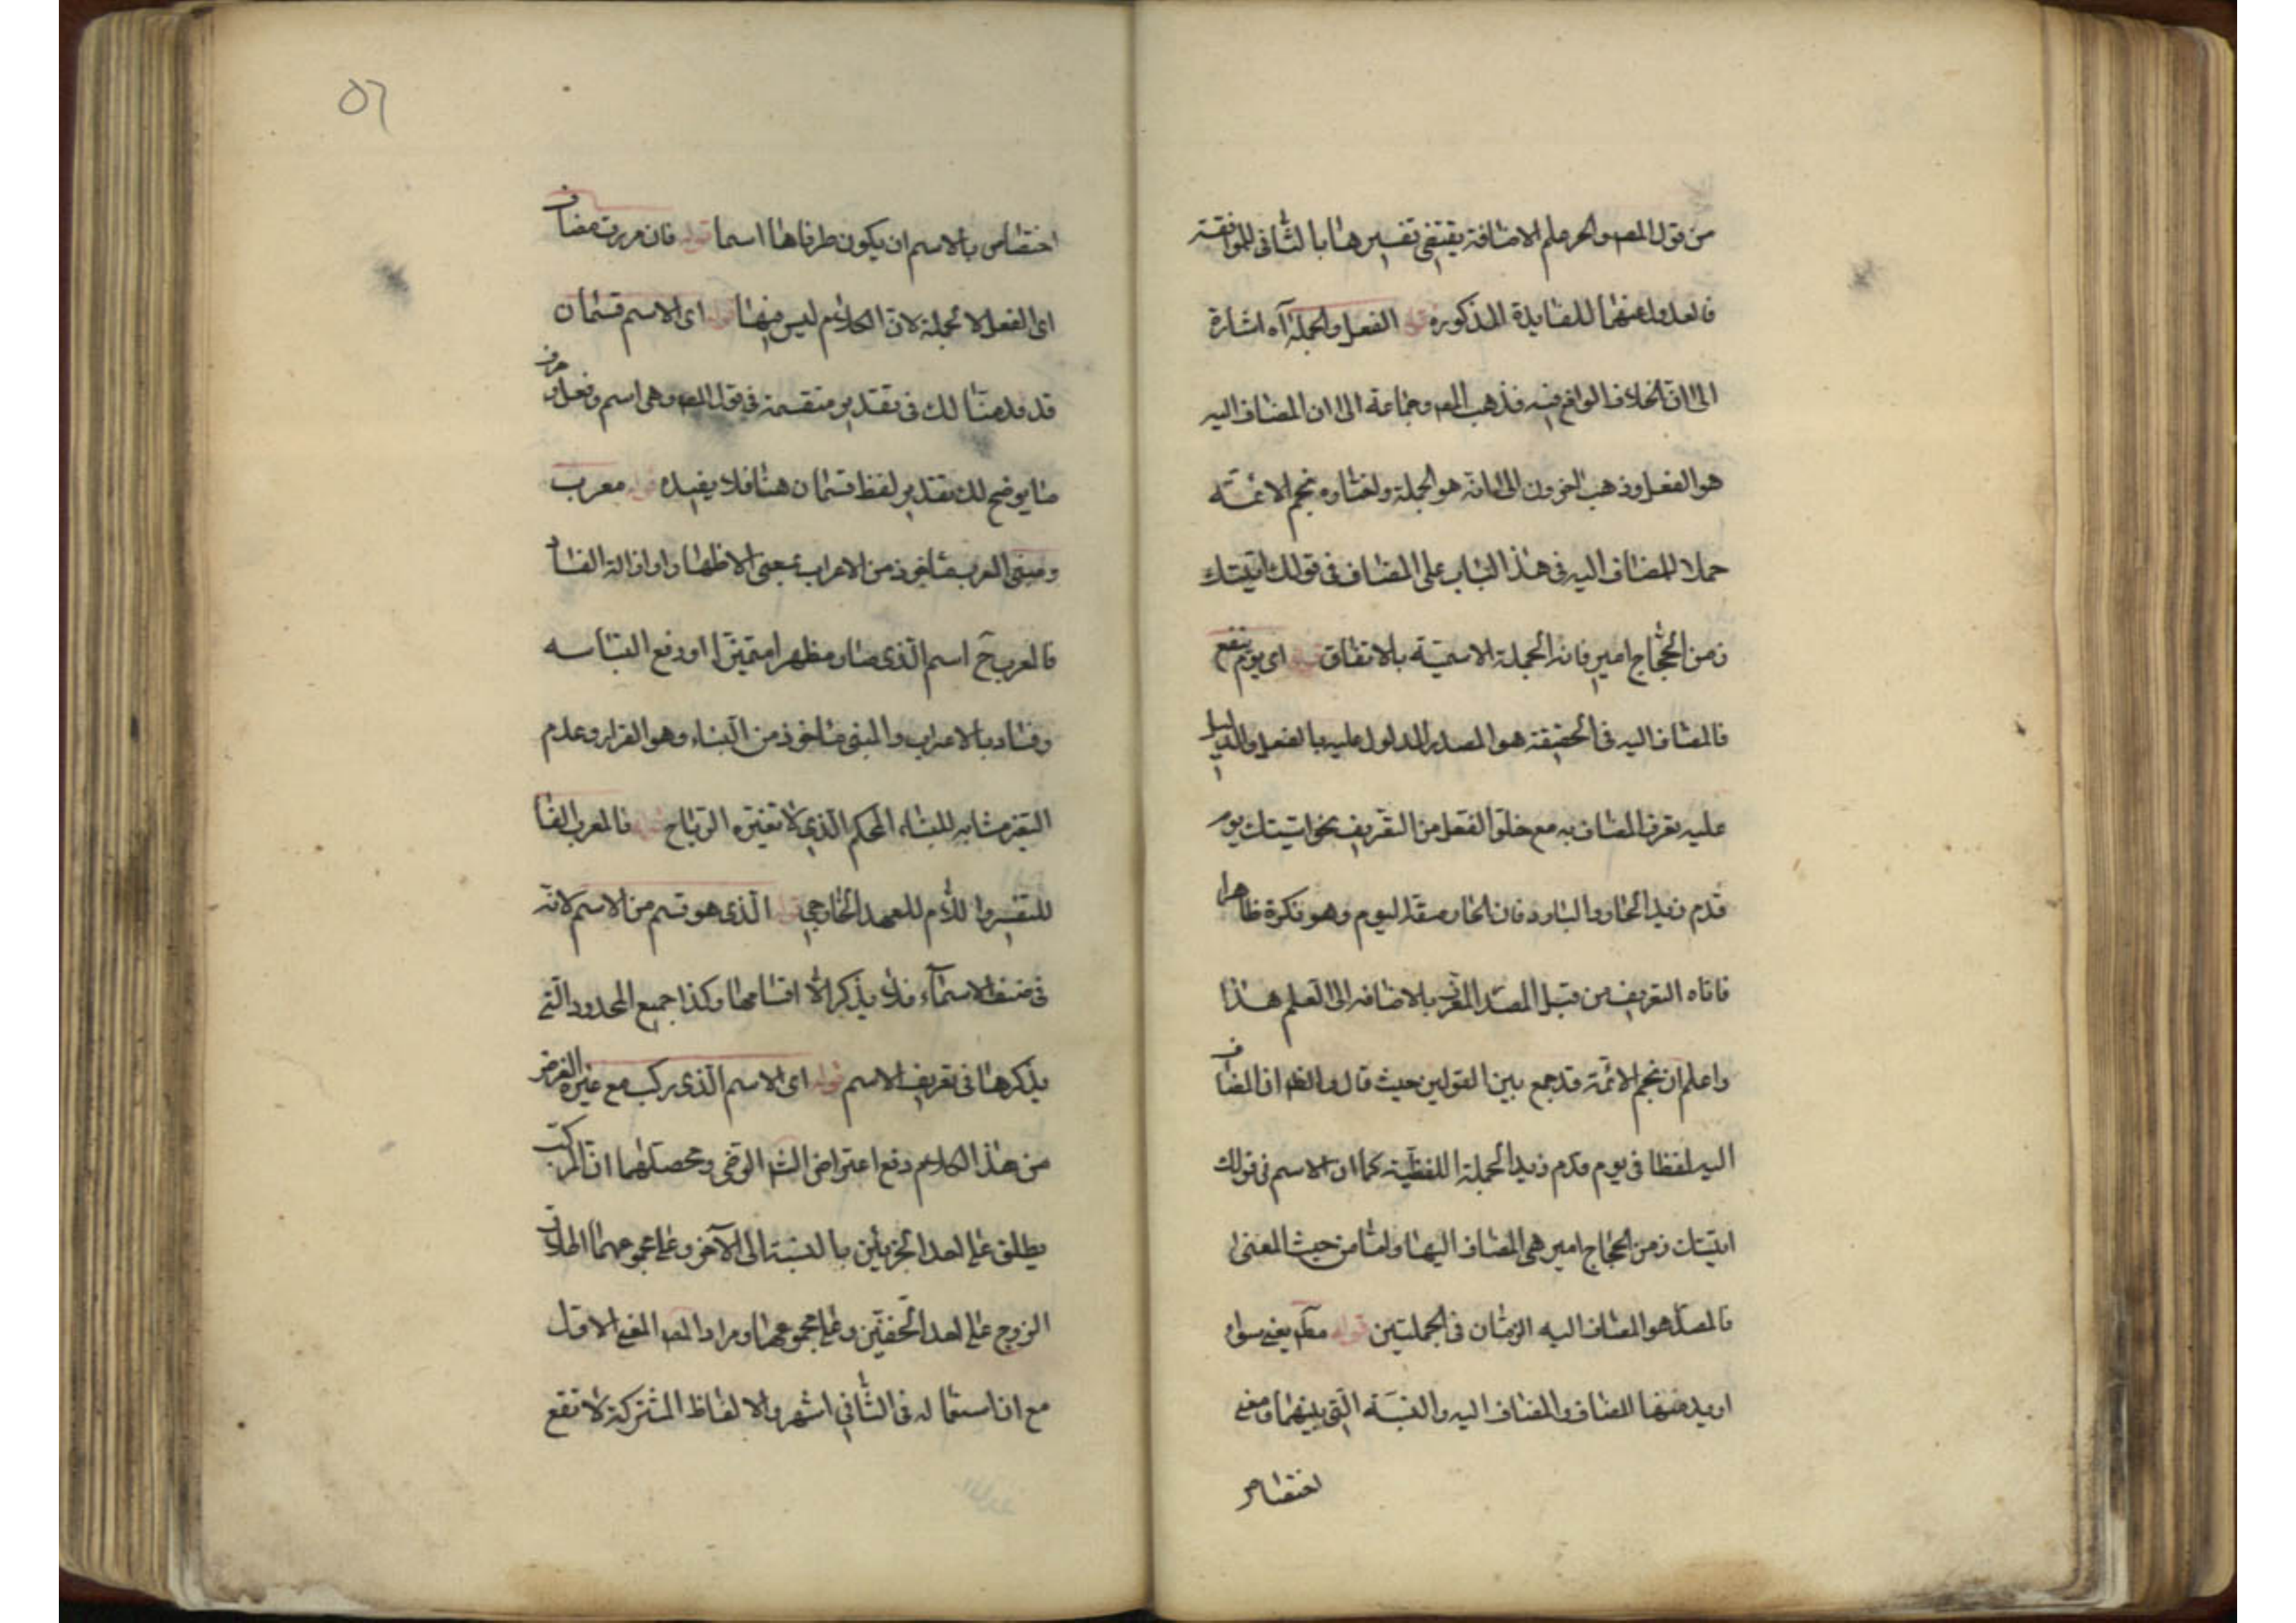 من قول المصـ والجر علم الاضافة يقتضى تفسيرها بالثانى للموافقة
فالعدول عنها للفايدة المذكورة قوله الفعل والجملة آه اشارة
الى ان الخلاف الواقع فيه فذهب المصـ وجماعة الى ان المضاف اليه
هو الفعل وذهب اخرون الى انه هو الجملة واختاره نجم الائمة
حملا للمضاف اليه فى هذا الباب على المضاف فى قولك اتيتك
زمن الحجاج امير فانه الجملة الاسمية بالاتفاق قوله اى يوم ينفع
فالمضاف اليه فى الحقيقة هو المصدر المدلول عليه بالفعل والدليل
عليه تعرف المضاف به مع خلو الفعل من التعريف نحو اتيتك يوم
قدم زيد الحار والبارد فان الحار صفة اليوم وهو نكرة ظاهرا
فاتاه التعريف من قبل المصدر المعرف بالاضافه الى العلم هذا
واعلم ان نجم الائمة قد جمع بين القولين حيث قال والظـ ان المضاف
اليه لفظا فى يوم قدم زيد الجملة اللفظية كما ان الاسم فى قولك
اتيتك زمن الحجاج امير هى المضاف اليها واما من حيث المعنى
فالمصدر هو المضاف اليه الزمان فى الجملتين قوله يعنى سواء
اريد منها المضاف والمضاف اليه والنسبة التى بينهما ومعنى
اختصاص
٥٦
اختصاص بالاسم ان يكون طرفاها اسما قوله فان مررت مضاف
اى الفعل لا الجملة لان الكلام ليس فيها قوله اى الاسم قسمان
قد قدمنا لك فى تقدير منقسمة فى قول المصـ وهى اسم وفعل وحرف
ما يوضح لك تقدير لفظ قسمان هنا فلا يفيده قوله معرب
ومبنى المعرب ماخوذ من الاعراب بمعنى الاظهار او ازالة الفساد
فالمعرب ح اسم الذى صار مظهرا متميزا او رفع التباسه
وفساد بالاعراب والمبنى ماخوذ من البناء وهو القرار وعدم
التغير مشابه للبناء المحكم الذى لا تغيره الرياح قوله فالمعرب الفا
للتفسير واللام للعهد الخارجى قوله الذى هو قسم من الاسم لانه
فى صنف الاسماء فلا يذكر الا اقسامها وكذا جميع الحدود التى
يذكرها فى تعريف الاسم قوله اى الاسم الذى ركب مع غيره الغرض
من هذا الكلام دفع اعتراض الشـ الرضى ومحصلهما ان المركب
يطلق على احد الجزئين بالنسبة الى الآخر وعلى مجموعهما اطلاق
الزوج على احد الخفين وعلى مجموعهما ومراد المصـ المعنى الاول
مع ان استعماله فى الثانى اشهر والالفاظ المشتركة لا تقع